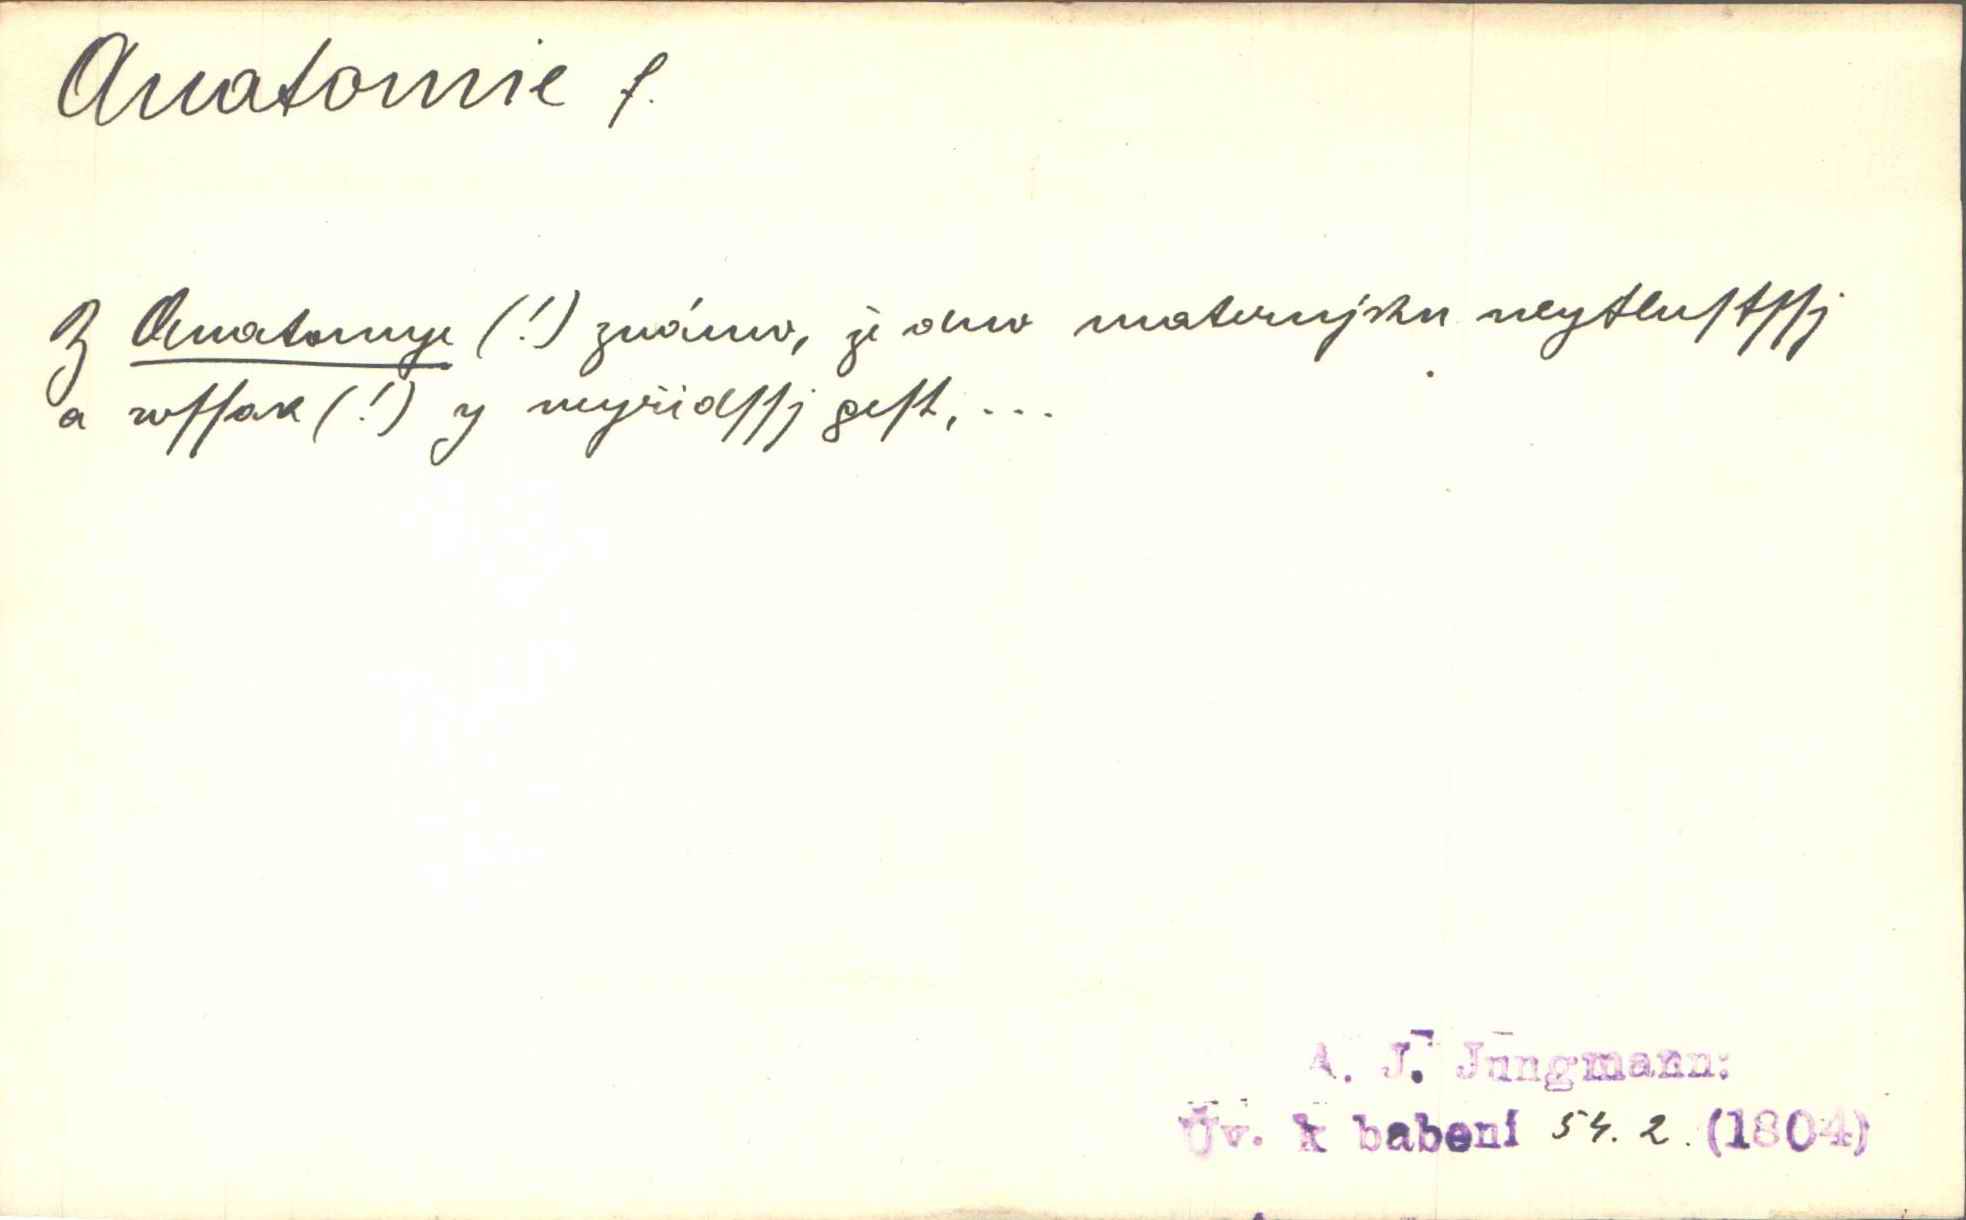 Anatomie f.
Z Anatomye (!) známo, že dno maternjku neytluſtſſj
a wſſak (!) y neyřidſſj geſt, ...
A. J. Jungmann:
Úv. k babení 54. 2. (1804)